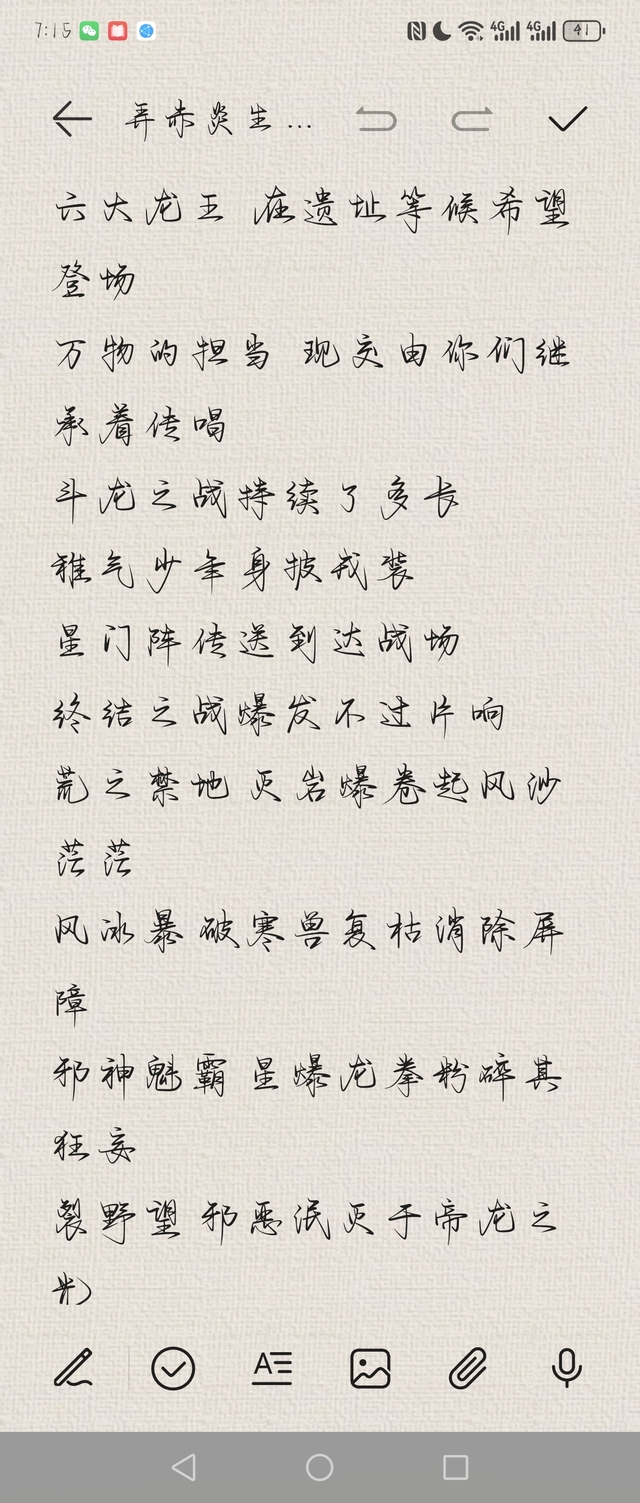 7:15 4G 4G 41
弄赤炎生...
六大龙王 在遗址等候希望
登场
万物的担当 现交由你们继
承着传唱
斗龙之战持续了多长
稚气少年身披戎装
星门阵传送到达战场
终结之战爆发不过片响
荒之禁地 灭岩爆卷起风沙
茫茫
风冰暴破寒兽复枯消除屏
障
邪神魁霸 星爆龙拳粉碎其
狂妄
裂野望 邪恶泯灭于帝龙之
光
A